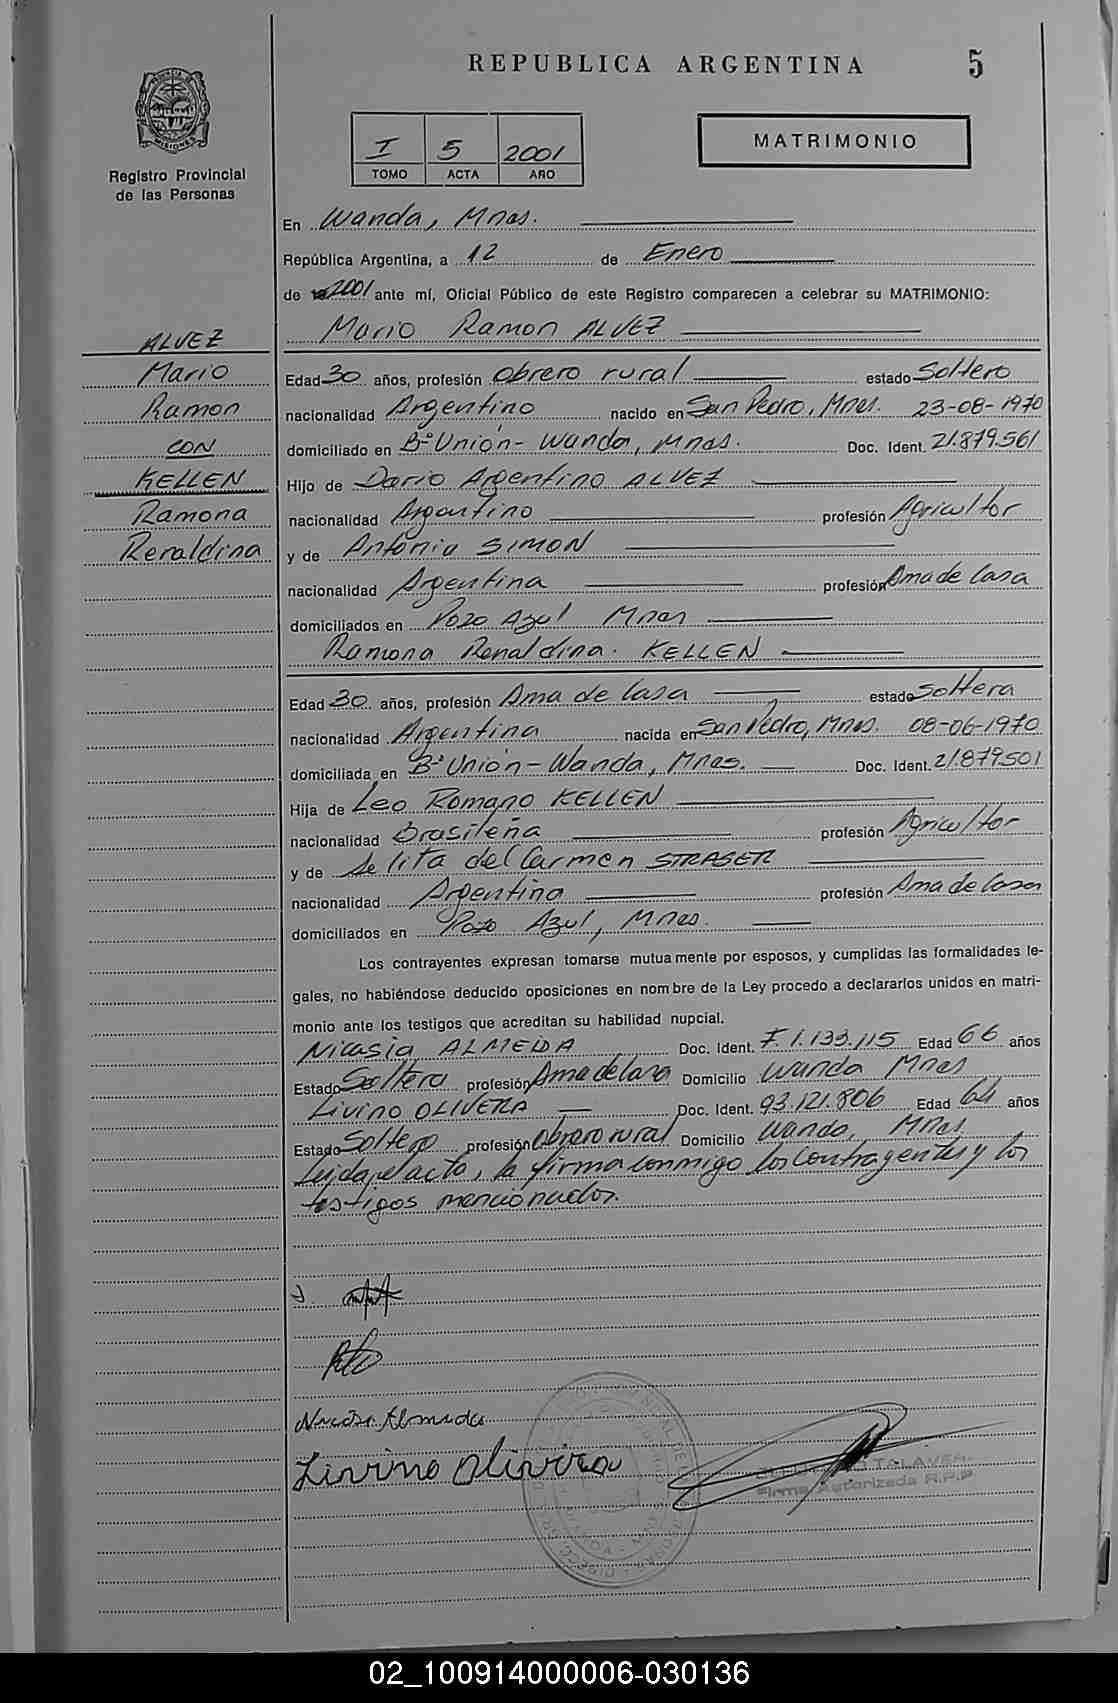 REPUBLICA ARGENTINA 5
PROVINCIA DE MISIONES
Registro Provincial
de las Personas
I 5 2001
TOMO ACTA AÑO
MATRIMONIO
En Wanda, Mnes.
República Argentina, a 12 de Enero
de 2001 ante mí, Oficial Público de este Registro comparecen a celebrar su MATRIMONIO:
Mario Ramon ALVEZ
ALVEZ
Mario
Ramon
CON
KELLEN
Ramona
Renaldina
Edad 30 años, profesión Obrero rural estado Soltero
nacionalidad Argentino nacido en San Pedro, Mnes. 23-08-1970
domiciliado en Bº Unión - Wanda, Mnes. Doc. Ident. 21.879.561
Hijo de Dario Argentino ALVEZ
nacionalidad Argentino profesión Agricultor
y de Antonia SIMON
nacionalidad Argentina profesión Ama de Casa
domiciliados en Pozo Azul Mnes
Ramona Renaldina KELLEN
Edad 30 años, profesión Ama de Casa estado Soltera
nacionalidad Argentina nacida en San Pedro, Mnes. 08-06-1970
domiciliada en Bº Unión - Wanda, Mnes. Doc. Ident. 21.879.501
Hija de Leo Romano KELLEN
nacionalidad Brasileña profesión Agricultor
y de del Carmen STRASER
nacionalidad Argentina profesión Ama de Casa
domiciliados en Pozo Azul, Mnes.
Los contrayentes expresan tomarse mutuamente por esposos, y cumplidas las formalidades le-
gales, no habiéndose deducido oposiciones en nombre de la Ley procedo a declararlos unidos en matri-
monio ante los testigos que acreditan su habilidad nupcial.
Nicasia ALMEIDA Doc. Ident. F. 1.133.115 Edad 66 años
Estado Soltera profesión Ama de Casa Domicilio Wanda Mnes
Livino OLIVERA Doc. Ident. 93.121.806 Edad 64 años
Estado Soltero profesión Obrero rural Domicilio Wanda, Mnes
Leida el acto, la firma conmigo los contrayentes y los
testigos mencionados.
Livino Oliveira
TALAVERA
Firma Autorizada R.P.P
02_100914000006-030136